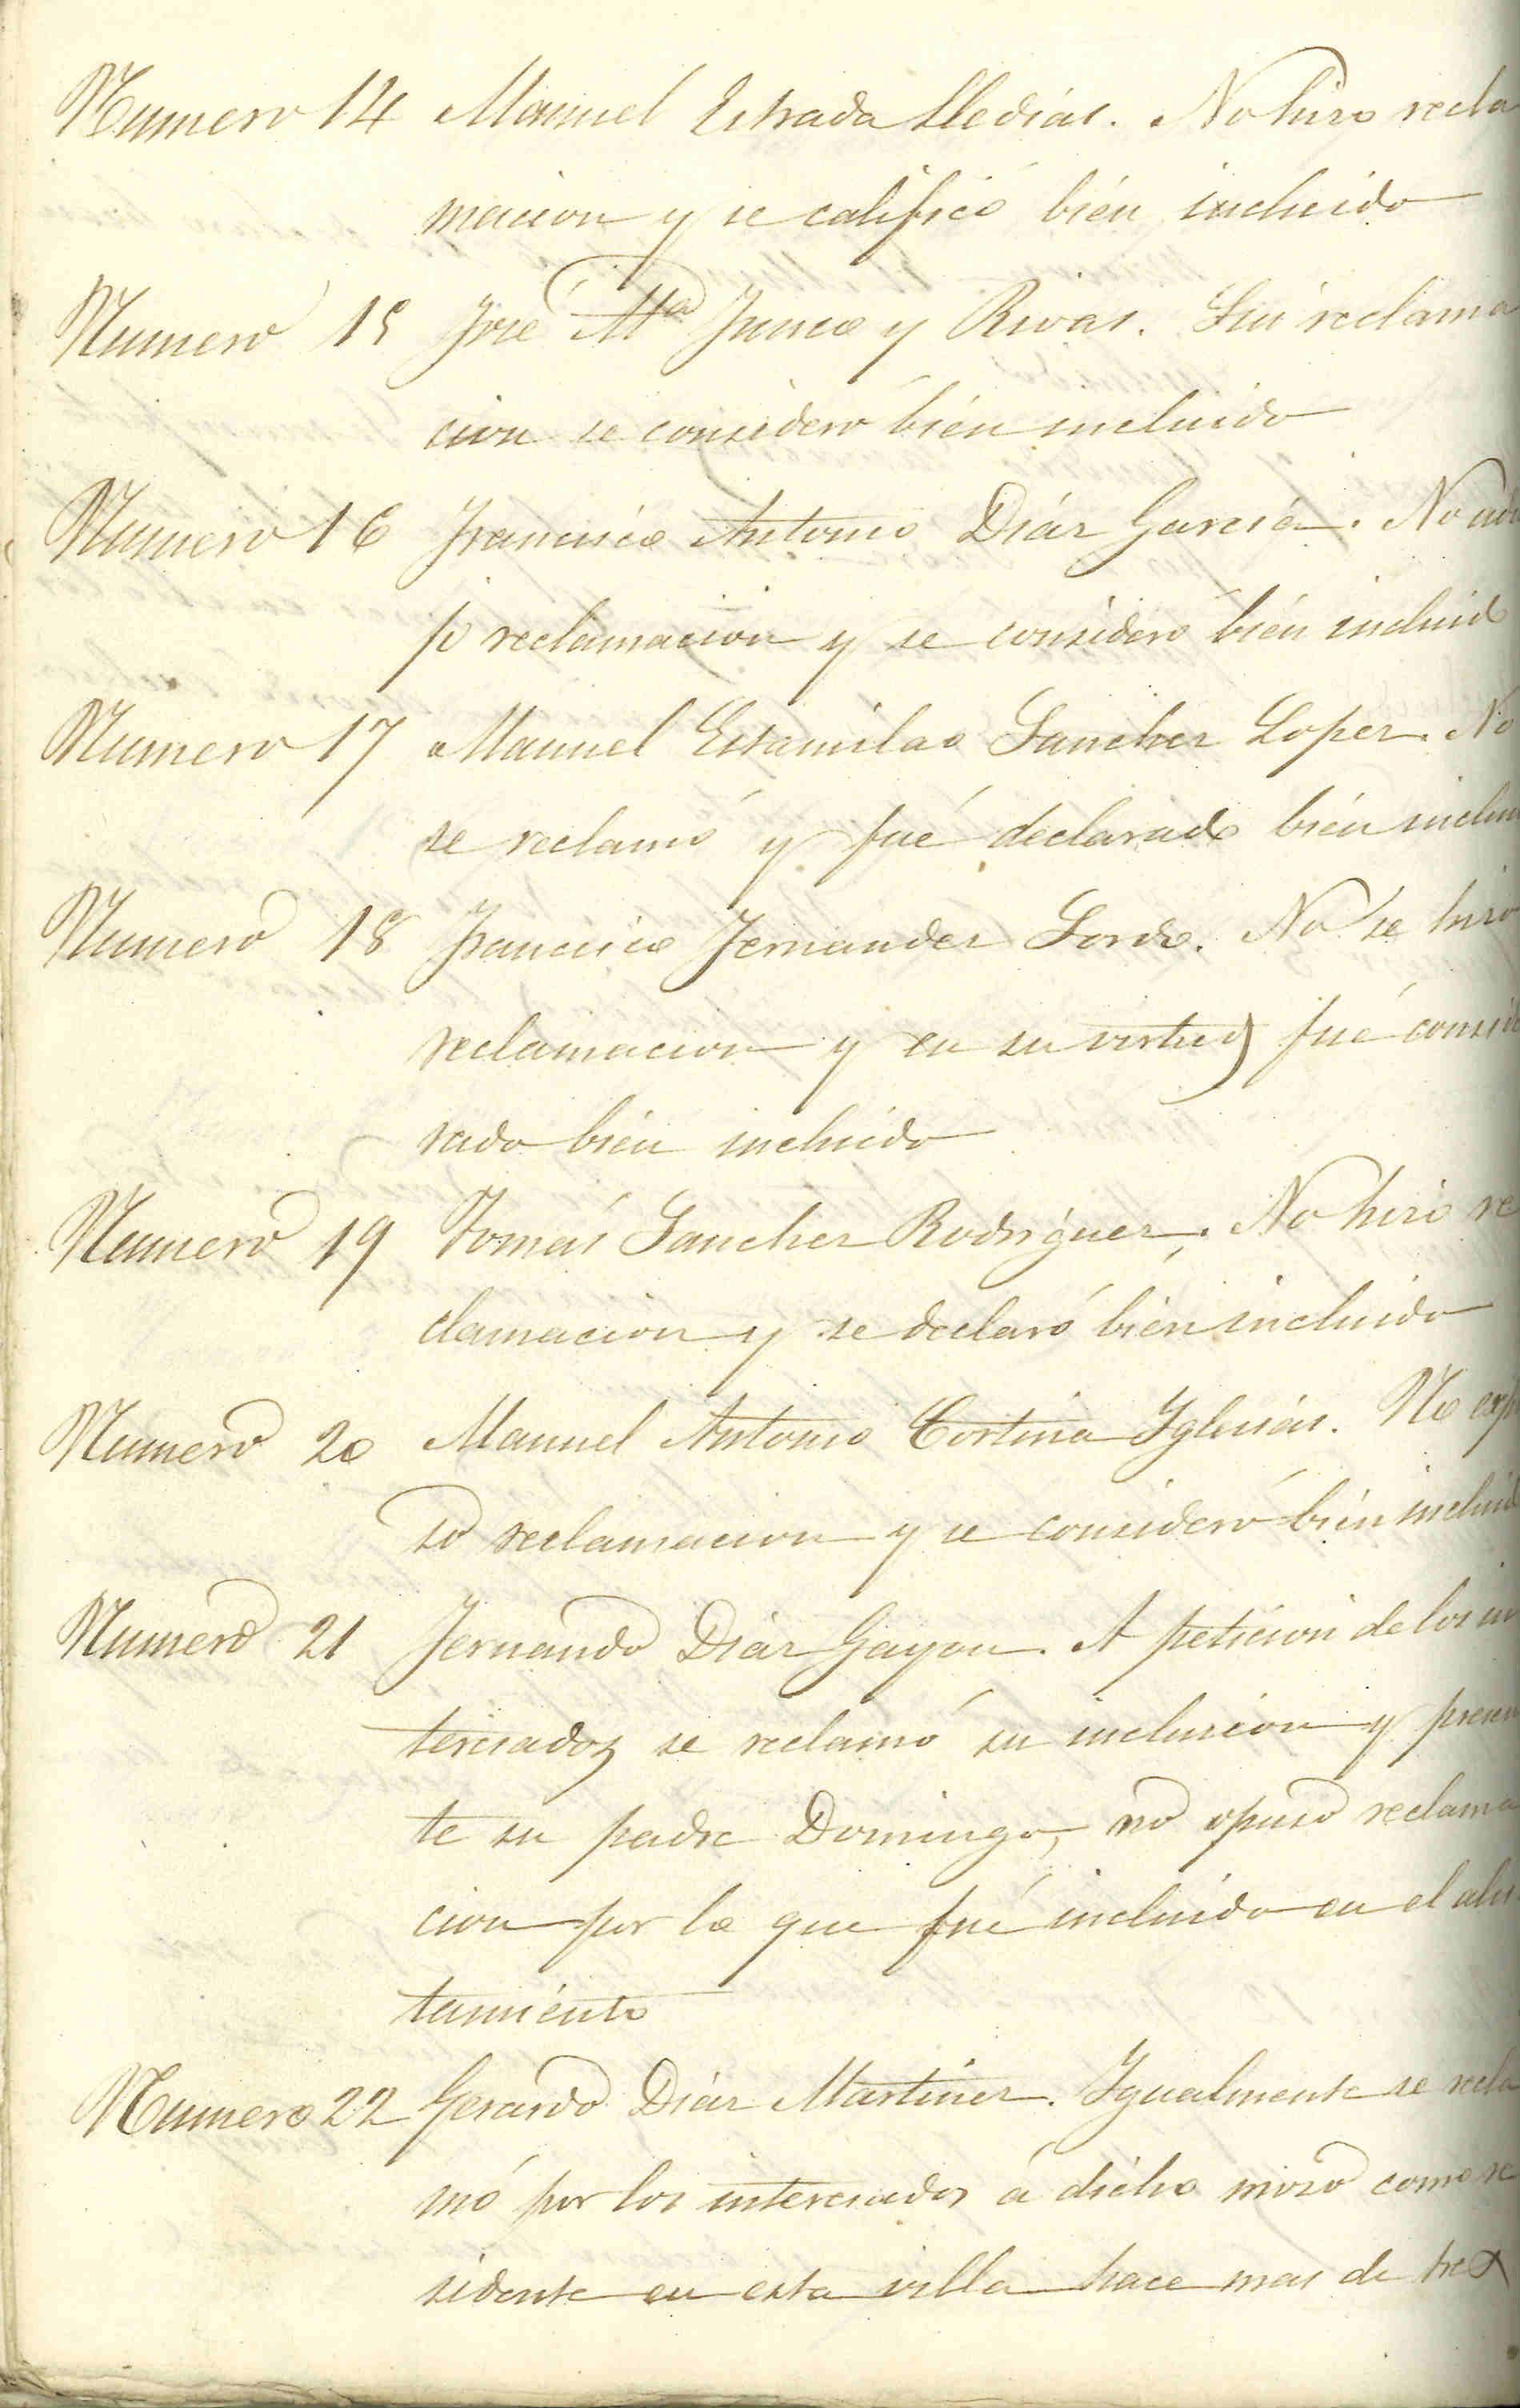 Numero 14 Manuel Estrada Lledías. No hizo recla
macion y se calificó bién incluido
Numero 15 José Mª Junco y Rivas. Sin reclama
cion se consideró bién incluido
Numero 16 Francisco Antonio Diáz García. No
reclamacion y se consideró bién incluido
Numero 17 Manuel Estanislao Sanchez Lopez. No
se reclamó y fué declarado bién inclui
Numero 18 Francisco Fernandez Sordo. No se hizo
reclamacion y en su virtud fué conside
rado bién incluido
Numero 19 Tomás Sanchez Rodriguez. No hizo re
clamacion y se declaró bién incluido
Numero 20 Manuel Antonio Cortina Yglesiás. No exp
so reclamacion y se consideró bién incluid
Numero 21 Fernando Diáz Gayon. A peticion de los in
teresados se reclamó su inclusion y presen
te su padre Domingo, no opuso reclama
cion por lo que fué incluido en el alis
tamiento
Numero 22 Gerardo Diáz Martinez. Ygualmente se recla
mó por los interesados á dicho mozo como re
sidente en esta villa hace mas de tres